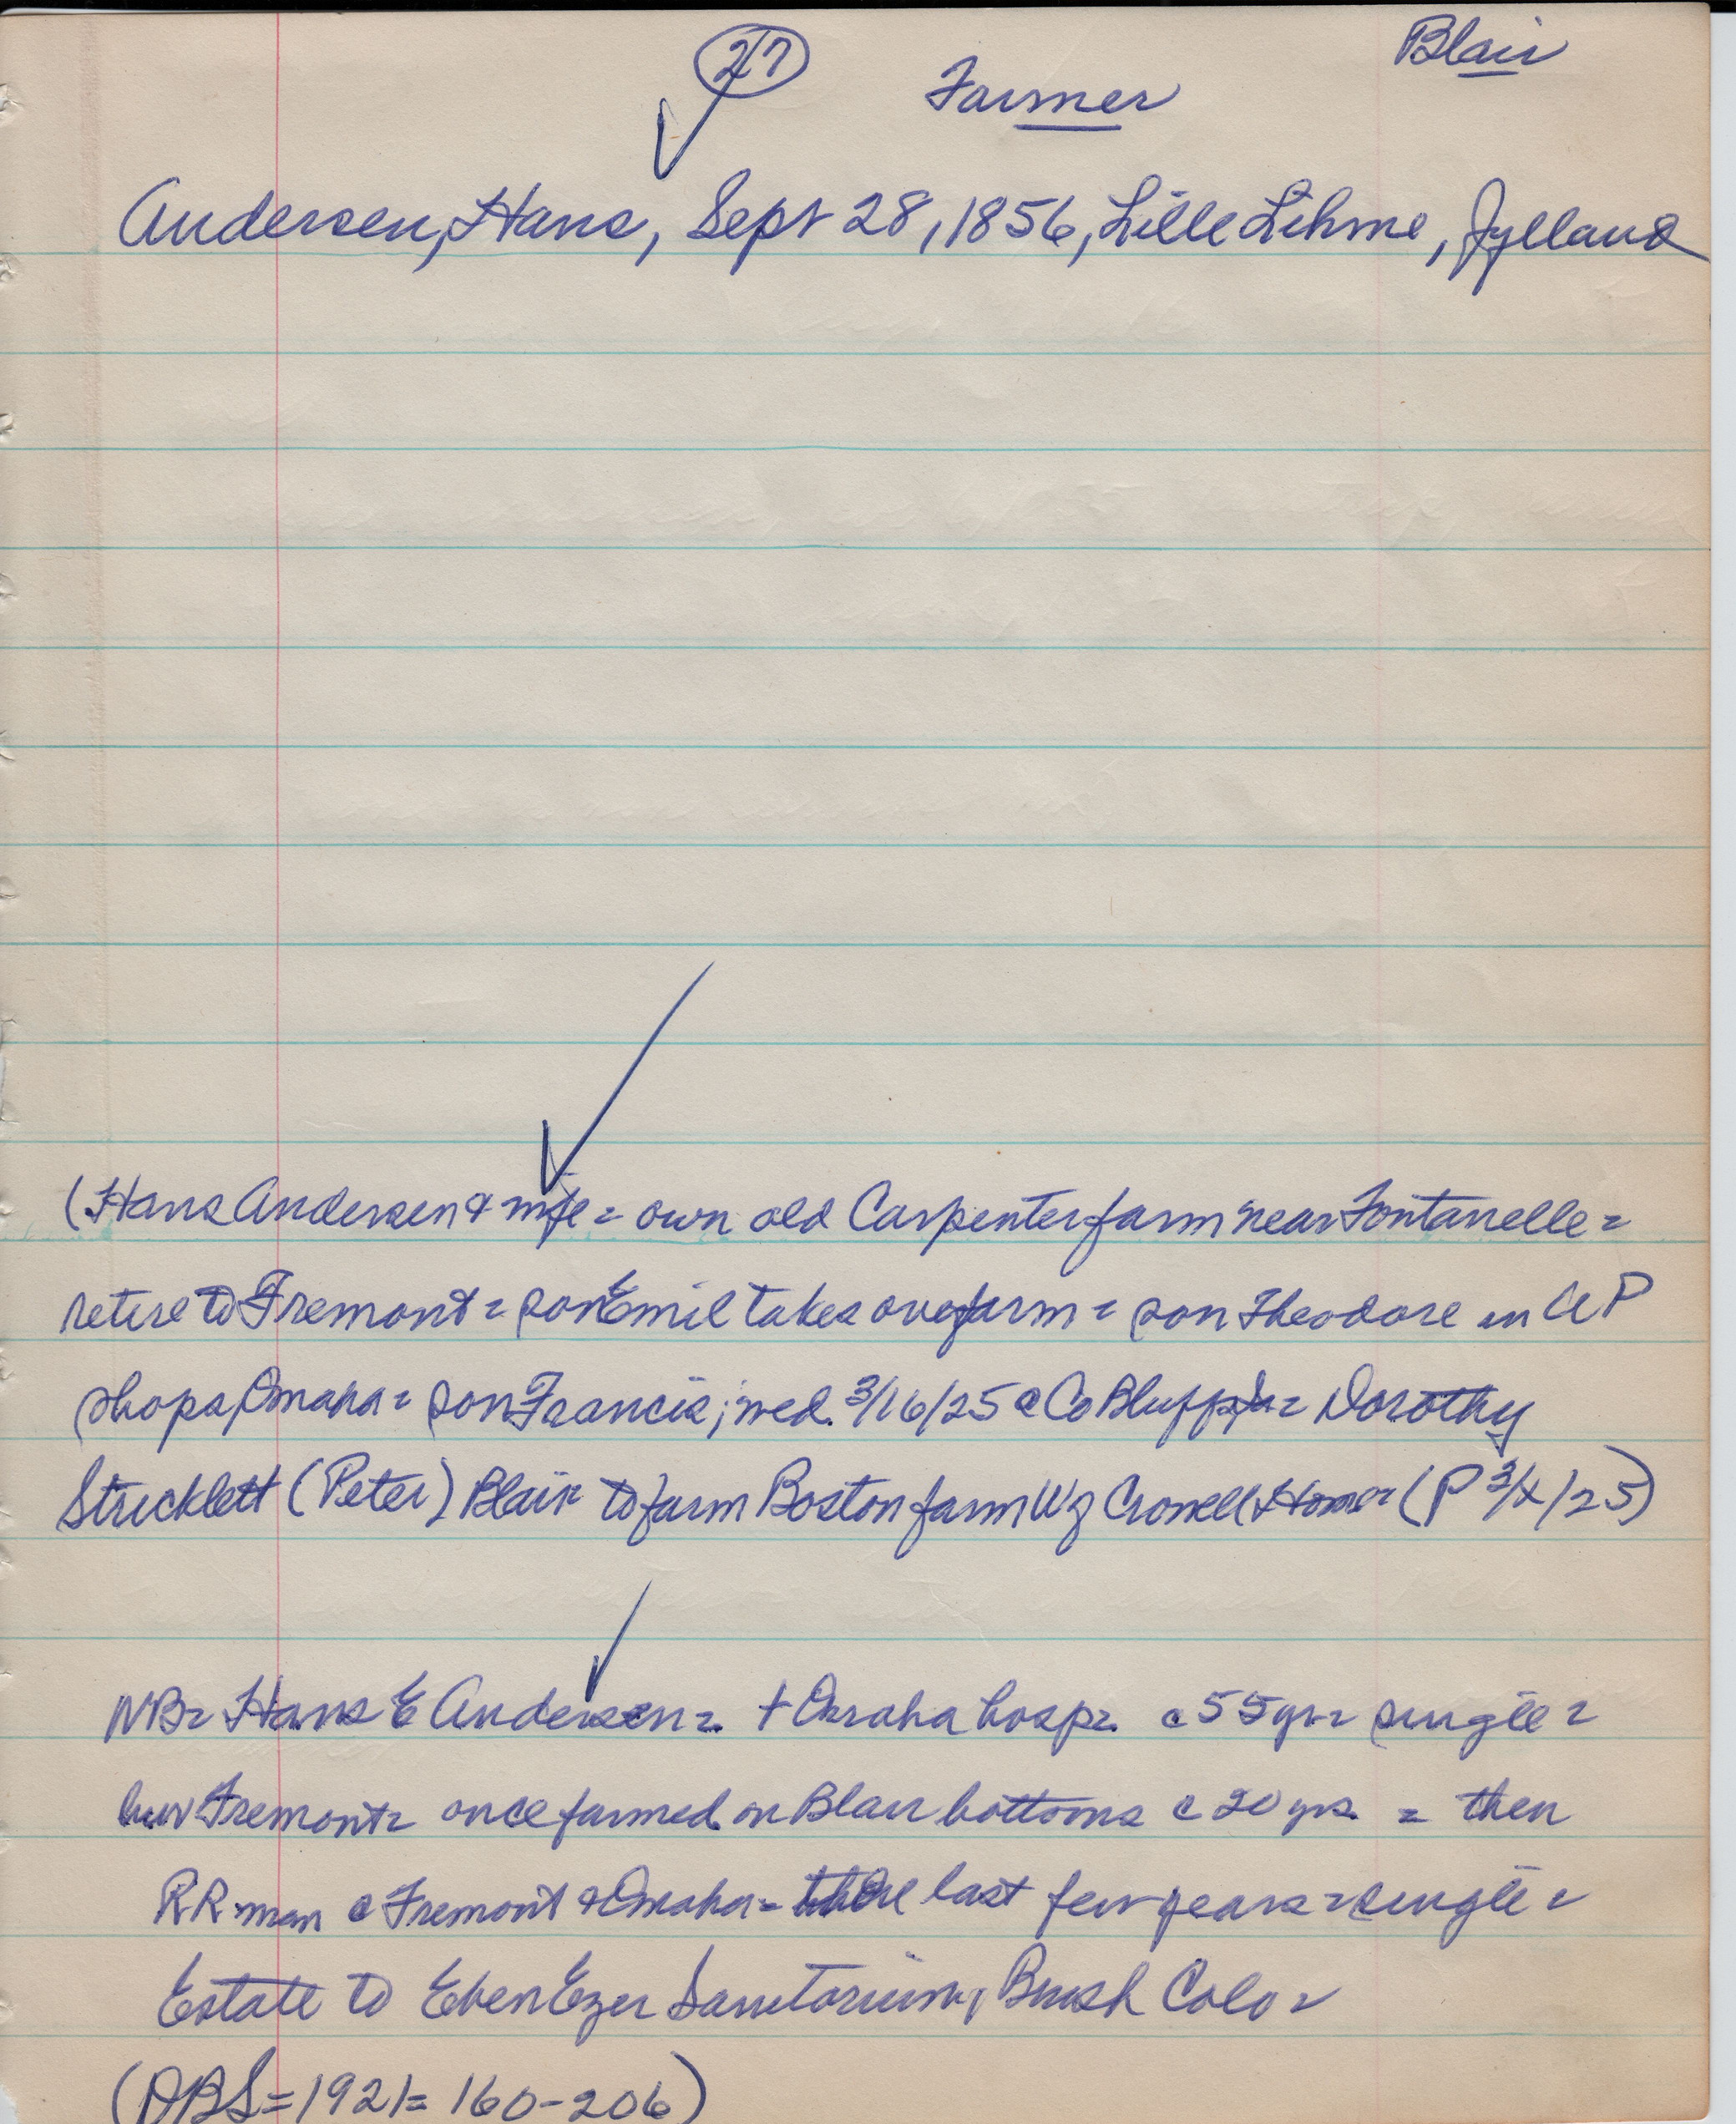 27
Blair
Farmer
Andersen, Hans, Sept 28, 1856, Lille Lihme, Jylland
(Hans Andersen & wife = own old Carpenter farm near Fontanelle =
retire to Fremont = son Emil takes over farm = son Theodore in UP
shops, Omaha = son Francis; wed. 3/16/25 @ Co Bluffs, Ia = Dorothy
Stricklett (Peter) Blair to farm Boston farm W of Crowell Home (P 3/4/25)
NB = Hans E Andersen = + Omaha hosp = c 55 yr = single =
bur Fremont = once farmed on Blair bottoms c 20 yrs = then
RR man @ Fremont & Omaha = there last few years = single =
Estate to EbenEzer Sanitorium, Brush Colo =
(DBS = 1921 = 160-206)